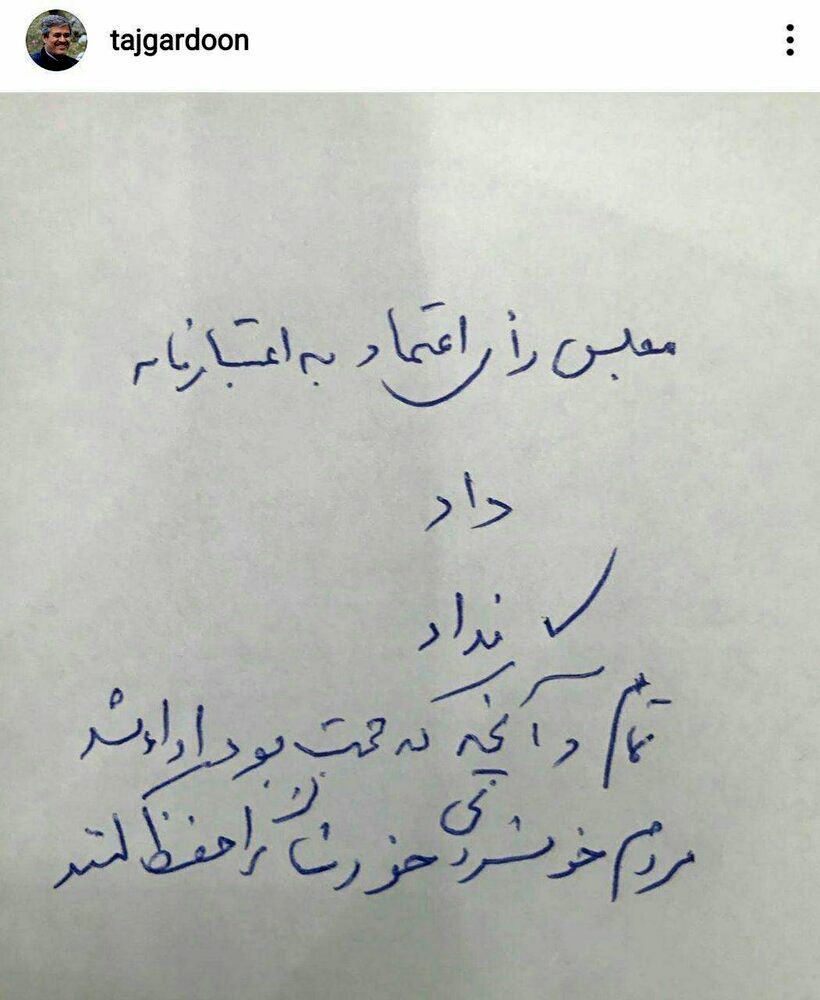 tajgardoon
مجلس رأی اعتماد به اعتبارنامه
داد
✓ نداد
تمام و آنچه که تحت بود اداء شد
مردم خونسردی خودشان را حفظ کنند